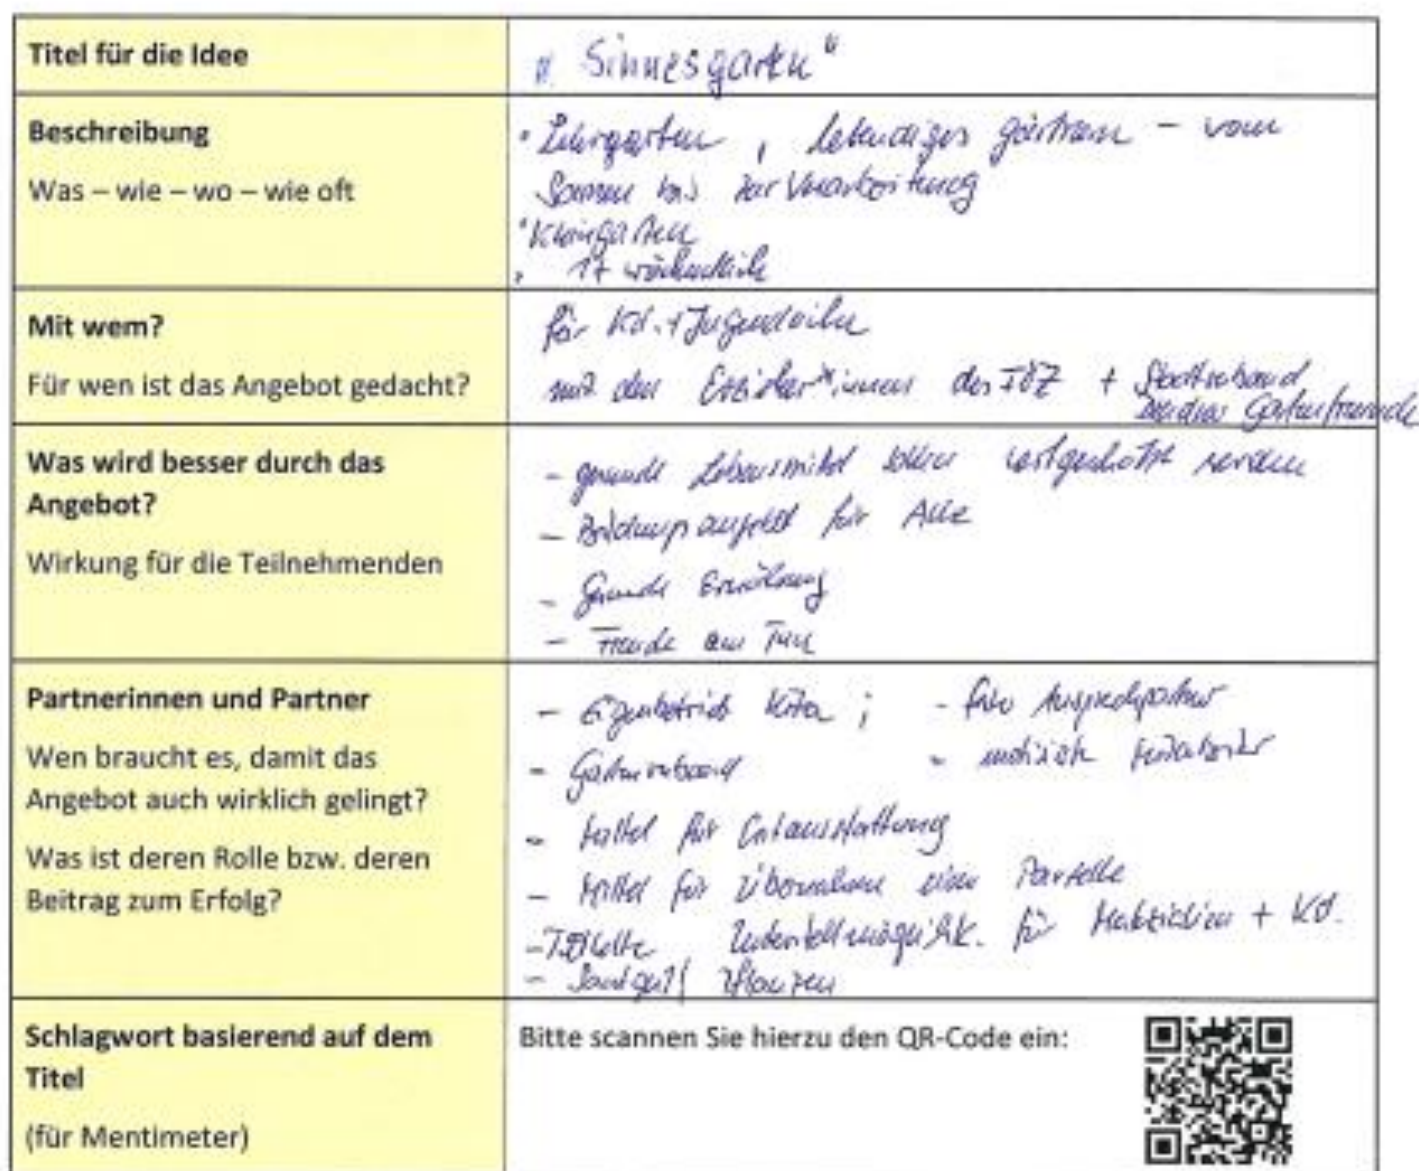 Titel für die Idee
„Sinnesgarten"
Beschreibung
Was – wie – wo – wie oft
• Lehrgarten, lebendiges gärtnern – vom
Samen bis zur Verarbeitung
• Kleingarten
• 1x wöchentlich
Mit wem?
Für wen ist das Angebot gedacht?
für Kd. + Jugendliche
mit den Erzieher*innen des + Stadtverband
Gartenfreunde
Was wird besser durch das
Angebot?
Wirkung für die Teilnehmenden
– gesunde Lebensmittel sollen wertgeschätzt werden
– Bildungsangebot für Alle
– Gesunde Ernährung
– Freude am Tun
Partnerinnen und Partner
Wen braucht es, damit das
Angebot auch wirklich gelingt?
Was ist deren Rolle bzw. deren
Beitrag zum Erfolg?
– Eigenbetrieb Kita ; – Ansprechpartner
– Gartenverband –
– Mittel für Erstausstattung
– Mittel für Übernahme einer Parzelle
– Toilette Unterstellmöglichk. für Materialien + Kd.
– Saatgut / Pflanzen
Schlagwort basierend auf dem
Titel
(für Mentimeter)
Bitte scannen Sie hierzu den QR-Code ein: